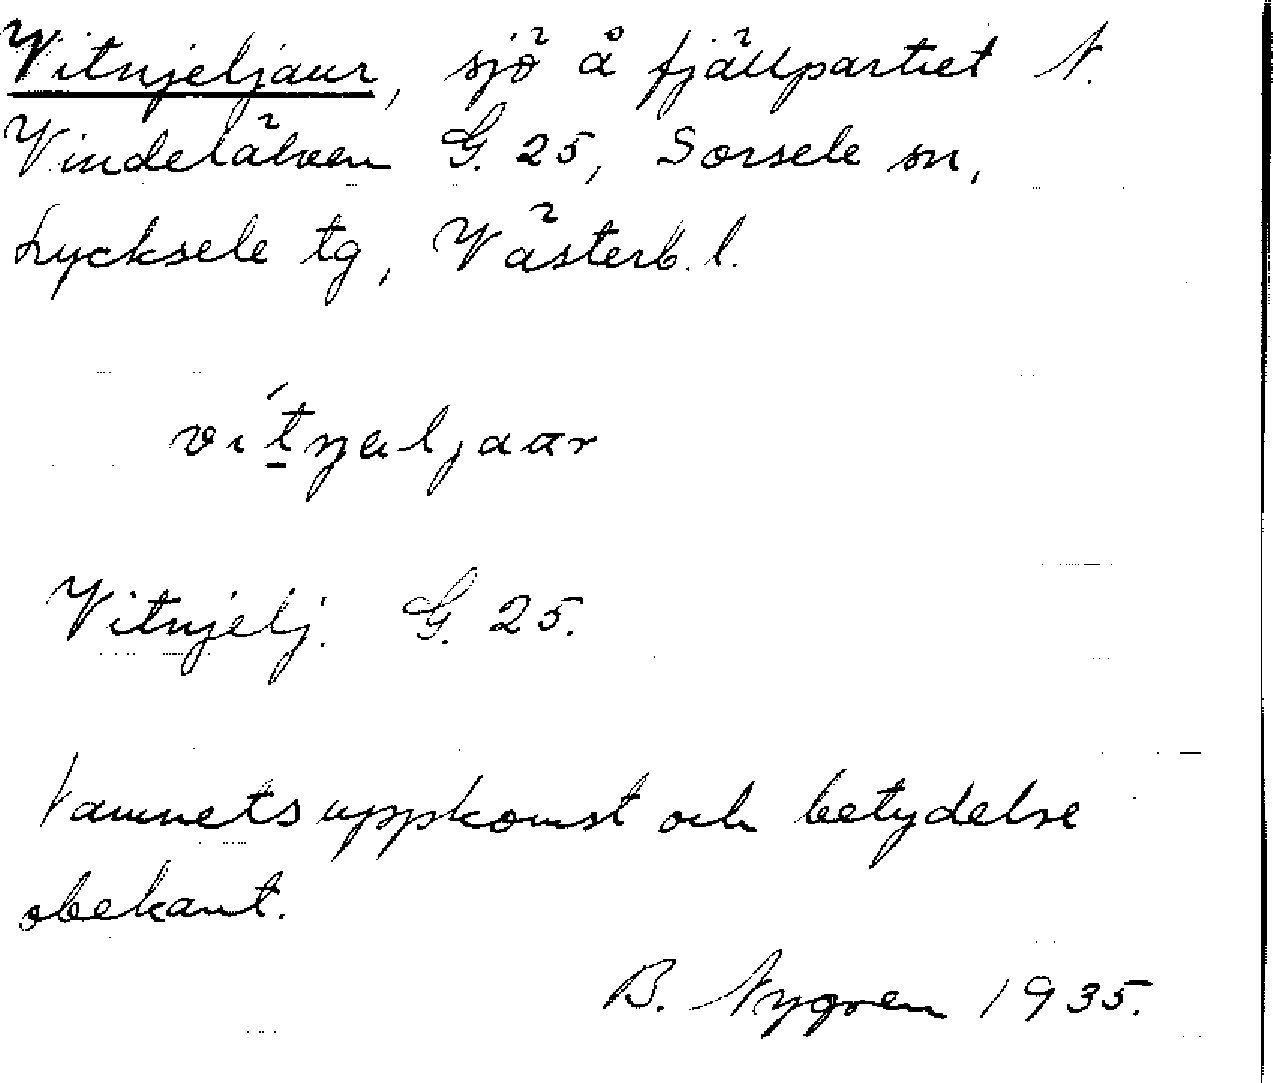 Vitnjeljaur, sjö å fjällpartiet N.
Vindelälven G. 25, Sorsele sn,
Lycksele tg, Västerb. l.
vítŋɐljaar
Vitnjelj. G. 25.
Namnets uppkomst och betydelse
obekant.
B. Nygren 1935.